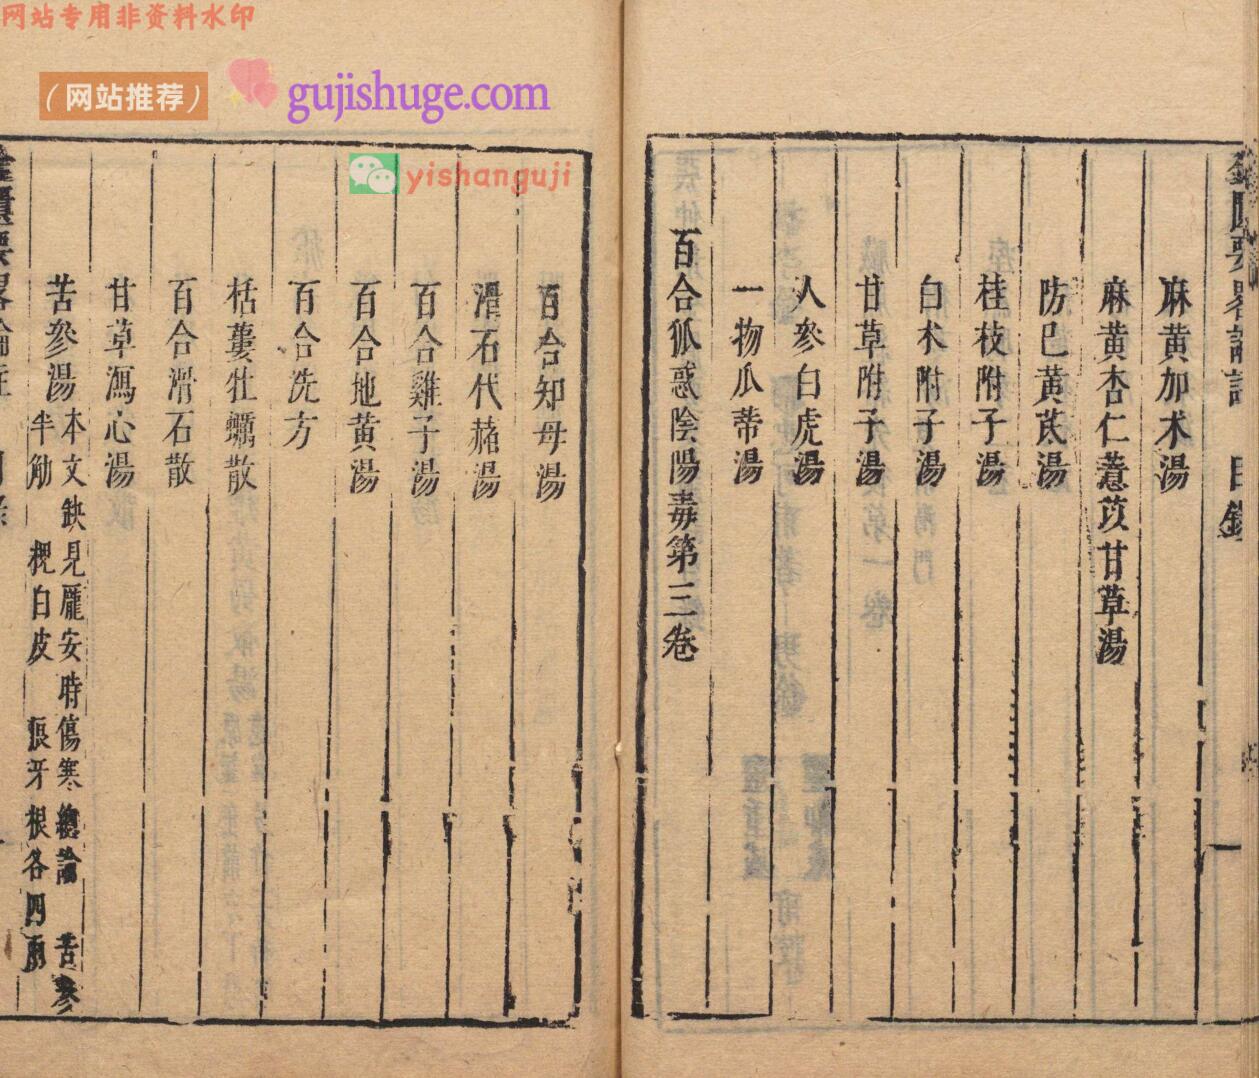 网站专用非资料水印
（网站推荐）
gujishuge.com
yishanguji
金匱要畧論註 目錄 一
麻黃加术湯
麻黃杏仁薏苡甘草湯
防巳黃芪湯
桂枝附子湯
白术附子湯
甘草附子湯
人參白虎湯
一物瓜蒂湯
百合狐惑陰陽毒第三卷
百合知母湯
滑石代赭湯
百合雞子湯
百合地黃湯
百合洗方
栝蔞牡蠣散
百合滑石散
甘草瀉心湯
苦參湯
本文缺見龐安時傷寒總論 苦參
半觔 槐白皮 狼牙根各四兩
金匱要畧論註